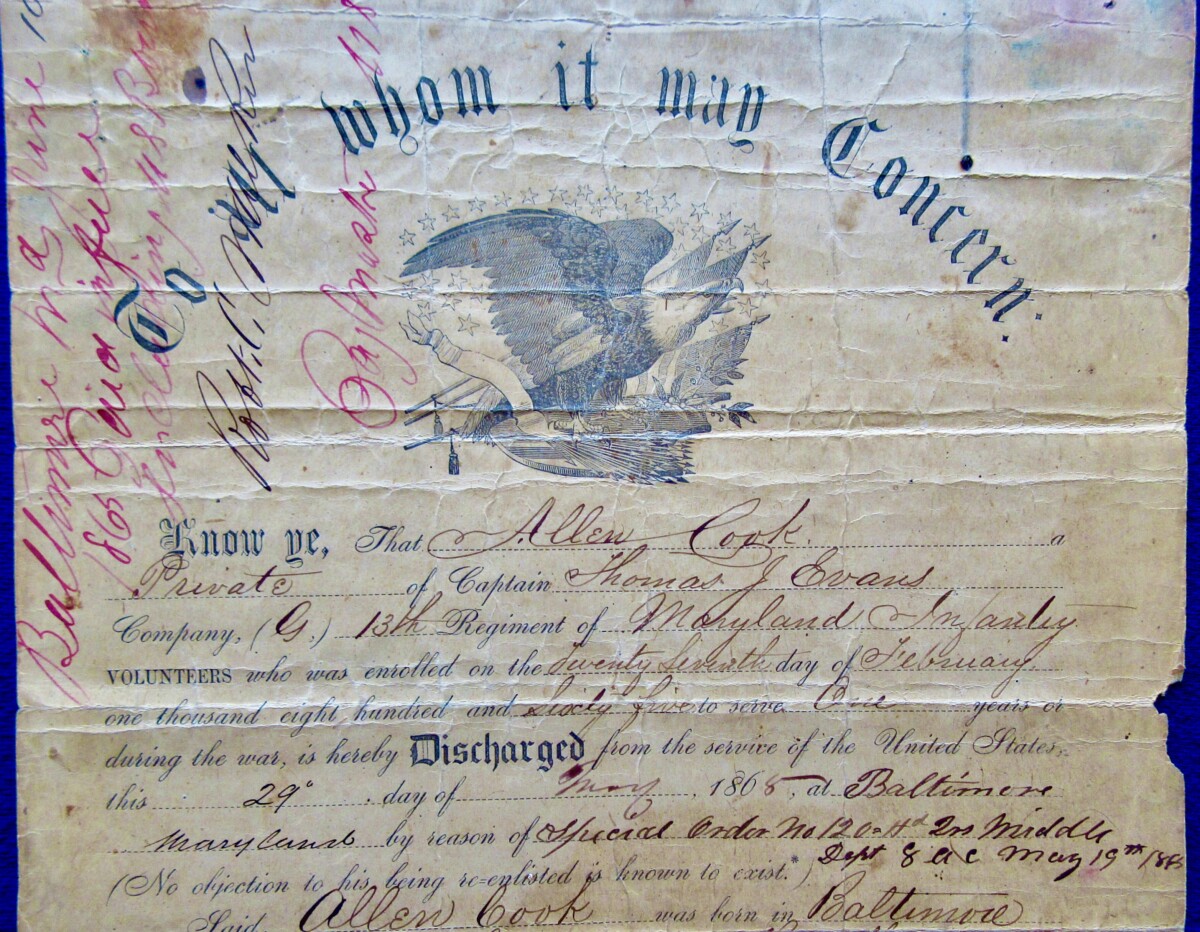 To whom it may Concern.
Know ye, That Allen Cook. a
Private of Captain Thomas J Evans
Company, (G.) 13th Regiment of Maryland Infantry
VOLUNTEERS who was enrolled on the Twenty Seventh day of February
one thousand eight hundred and Sixty five to serve One years or
during the war, is hereby Discharged from the service of the United States,
this 29" day of May, 1865, at Baltimore
Maryland by reason of Special Order No 120 Hd Qrs Middle
Dept 8 a c May 19th 1865
(No objection to his being re-enlisted is known to exist.*)
Said Allen Cook was born in Baltimore
Baltimore Md June
1865 Paid in full
Paymaster